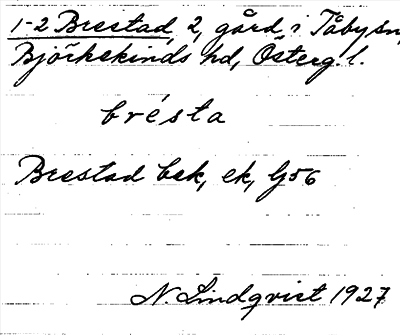 1-2 Brestad, 2, gård i Tåby sn,
Björkekinds hd, Österg. l.
brésta
Brestad bek, ek, G56
N. Lindqvist 1927